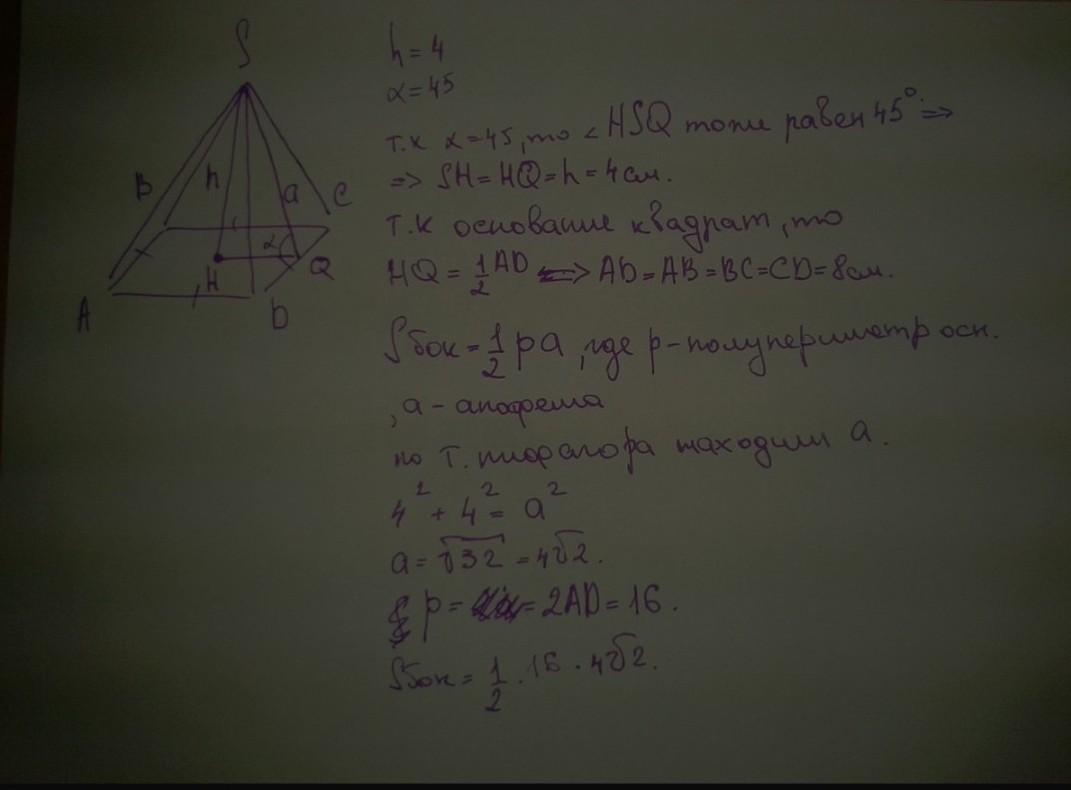 S
B
h
a
C
α
H
Q
A
D
h = 4
α = 45
т.к α = 45, то ∠HSQ тоже равен 45° ⇒
⇒ SH = HQ = h = 4 см.
т.к основание квадрат, то
HQ = 1/2 AD ⇒ AD = AB = BC = CD = 8 см.
Sбок = 1/2 pa, где p - полупериметр осн.
, a - апофема
по т. пифагора находим a.
4² + 4² = a²
a = √32 = 4√2.
p = = 2AD = 16.
Sбок = 1/2 · 16 · 4√2.